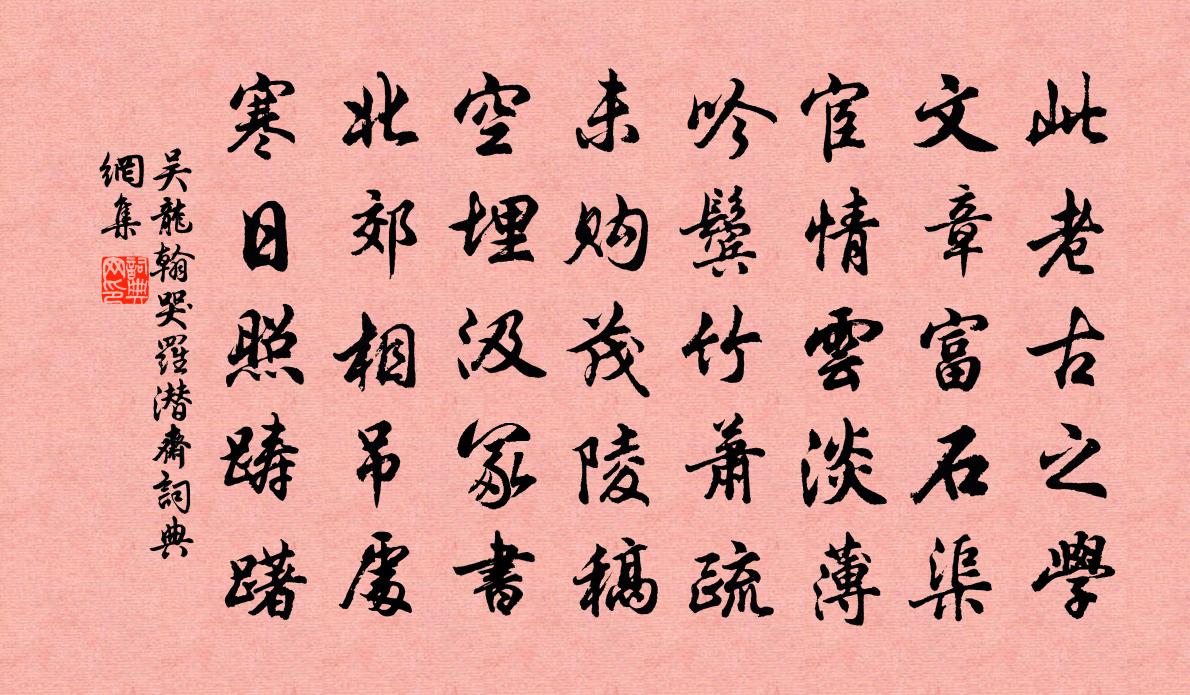 此老古之學
文章富石渠
宦情雲淡薄
吟鬢竹蕭疏
未購茂陵稿
空埋汲冢書
北郊相吊處
寒日照躊躇
吴龍翰哭羅潜齋詞典
網集
詞典網印